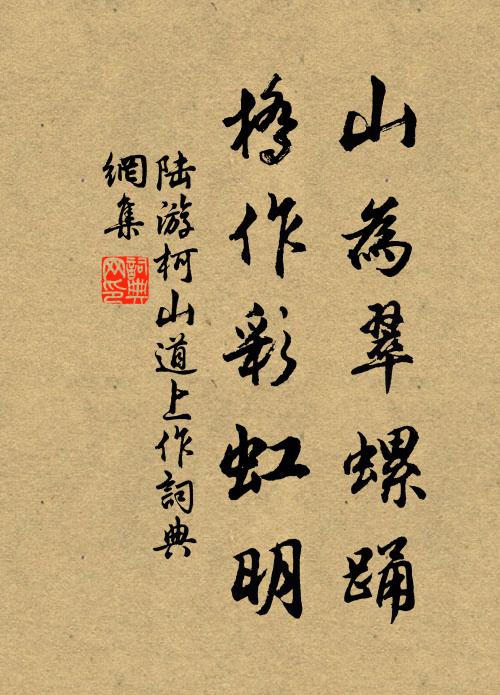 山為翠螺踊
橋作彩虹明
陸游柯山道上作詞典
網集
詞典
网印